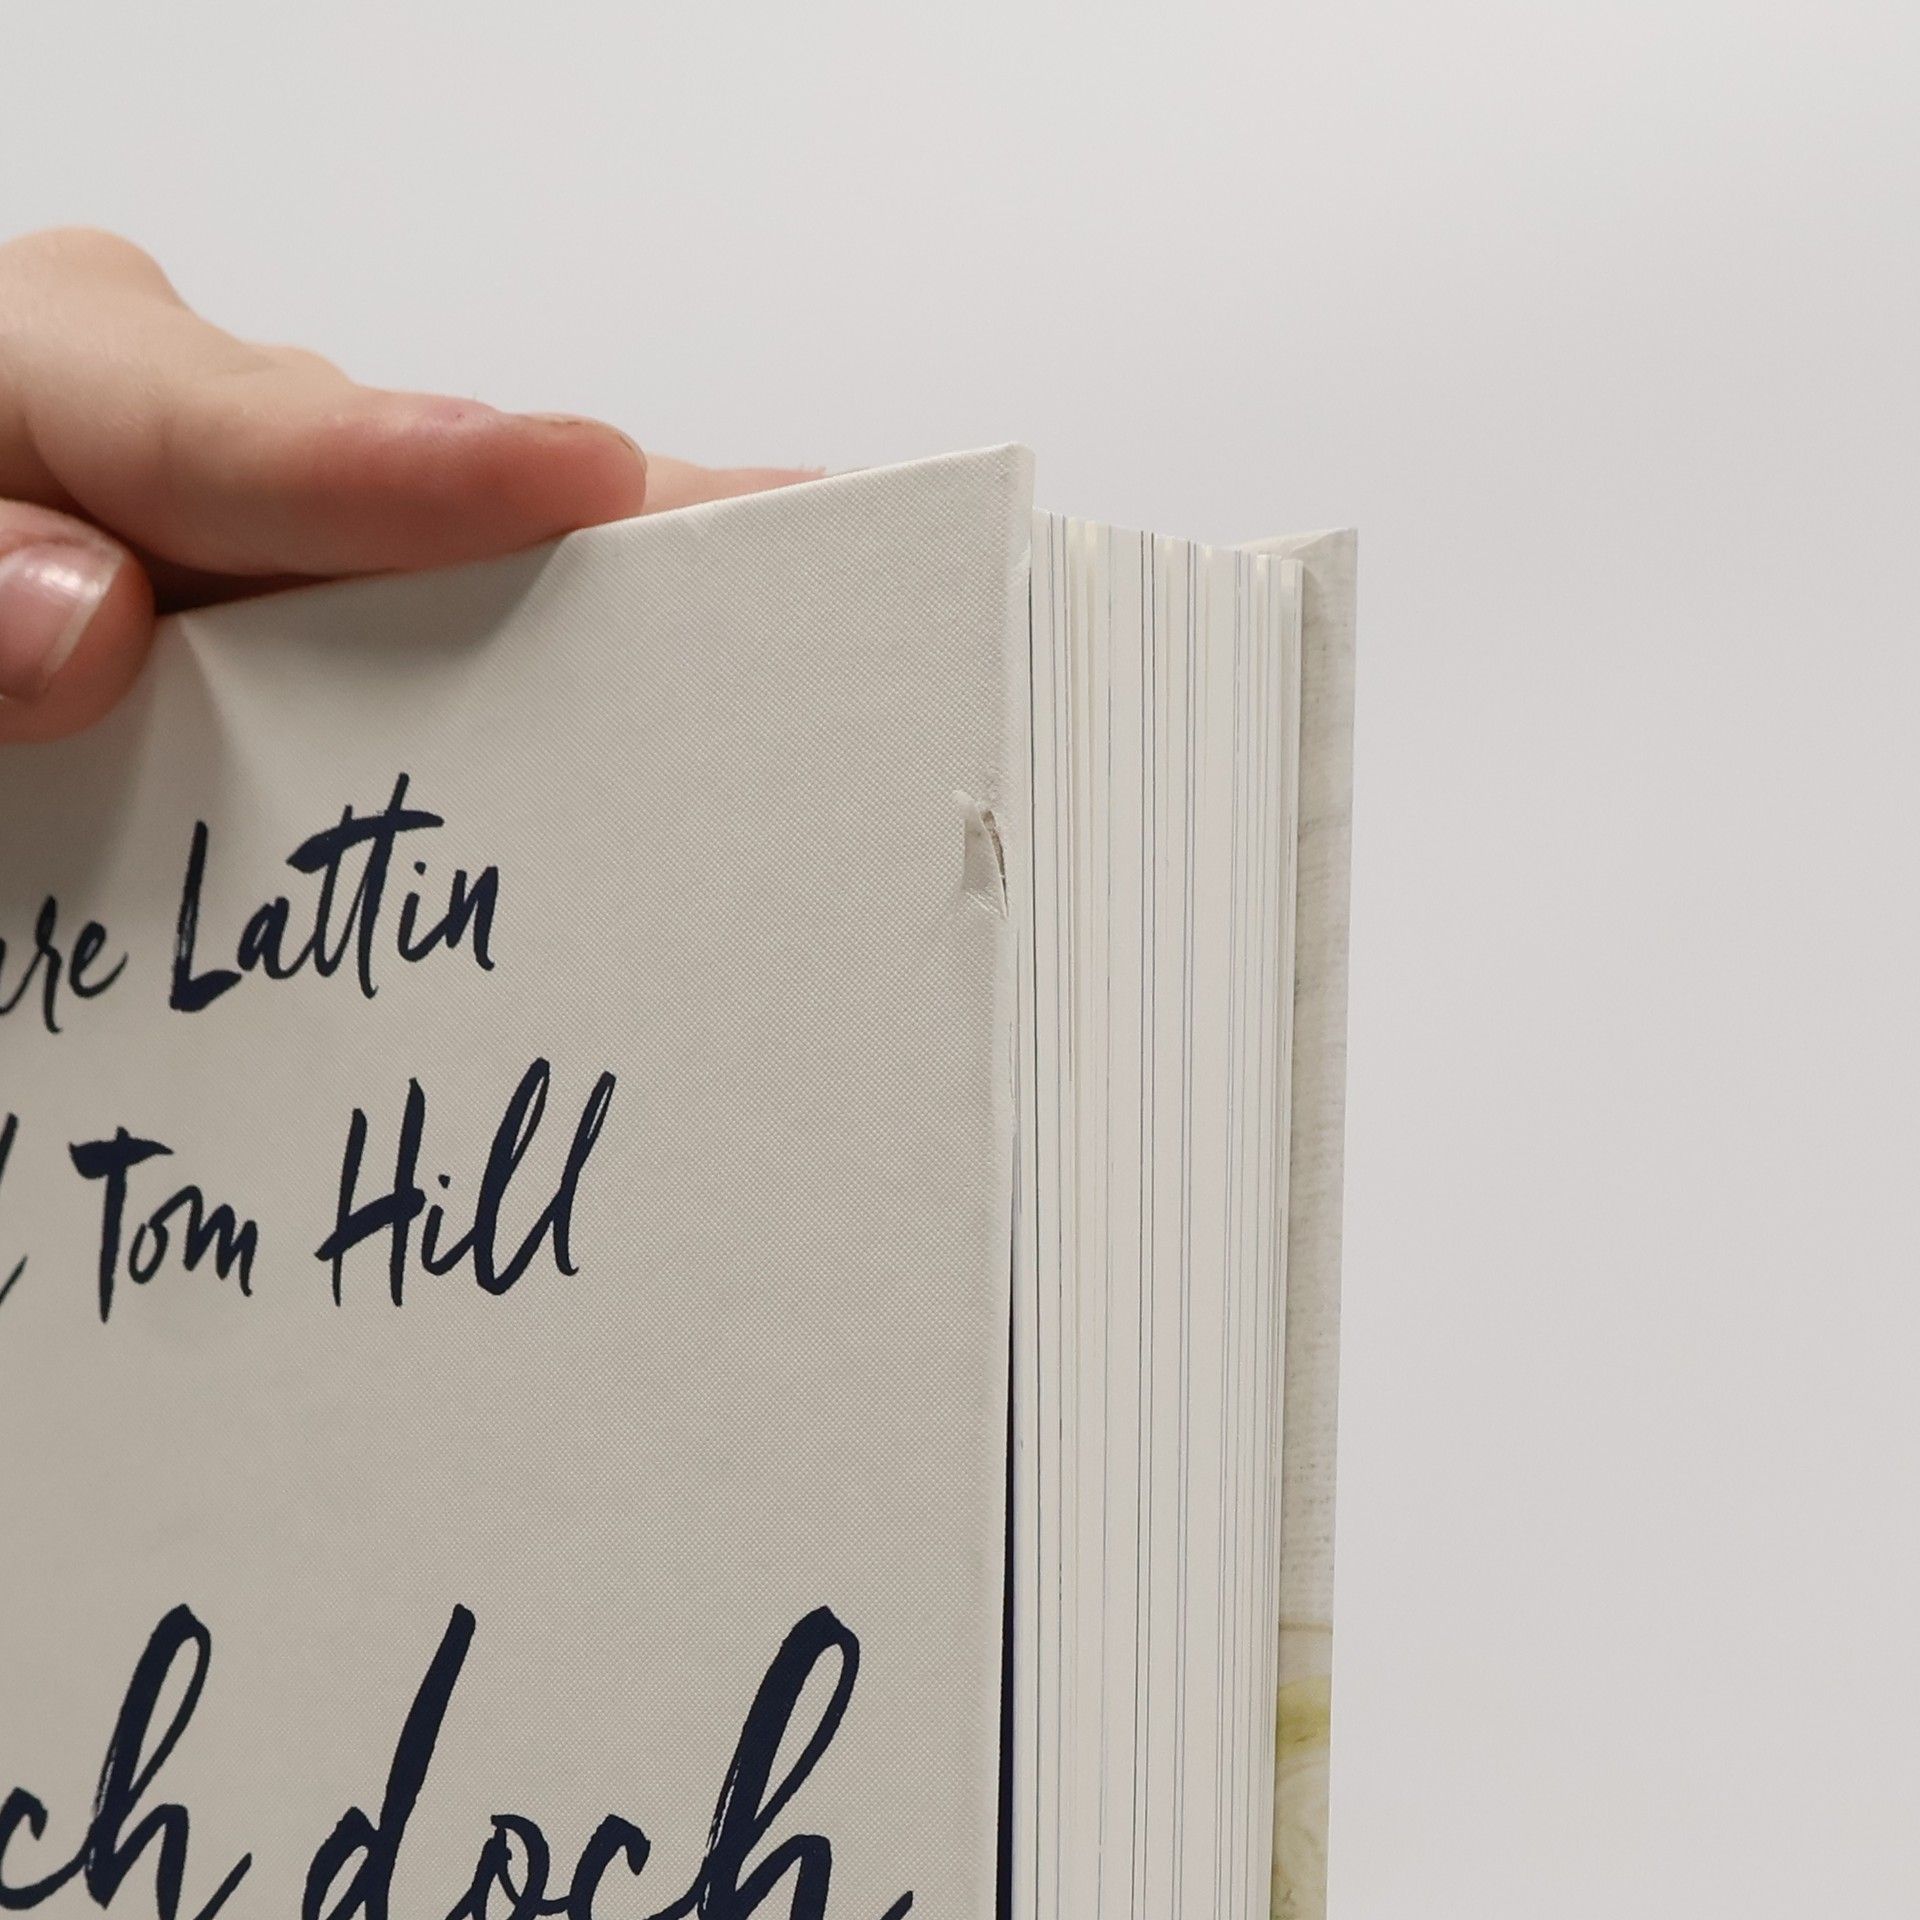 Lattin
Tom Hill
doch